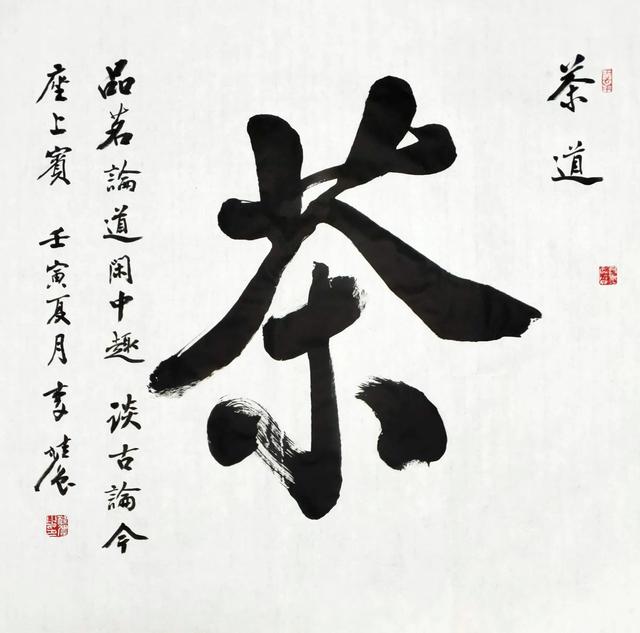 茶道
茶
品茗論道閑中趣 談古論今
座上賓 壬寅夏月 李